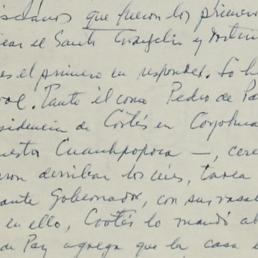 que fueron los primero
el Santo Evangelio y
es el primero en responder. Lo h
Tanto él como Pedro de Pa
sidencia de Cortés en Coyohua
Cuauhpopoca —, cer
ron derribar los
ante Gobernador, con sus vasa
en ello, Cortés lo mandó a
de Paz agrega que la casa